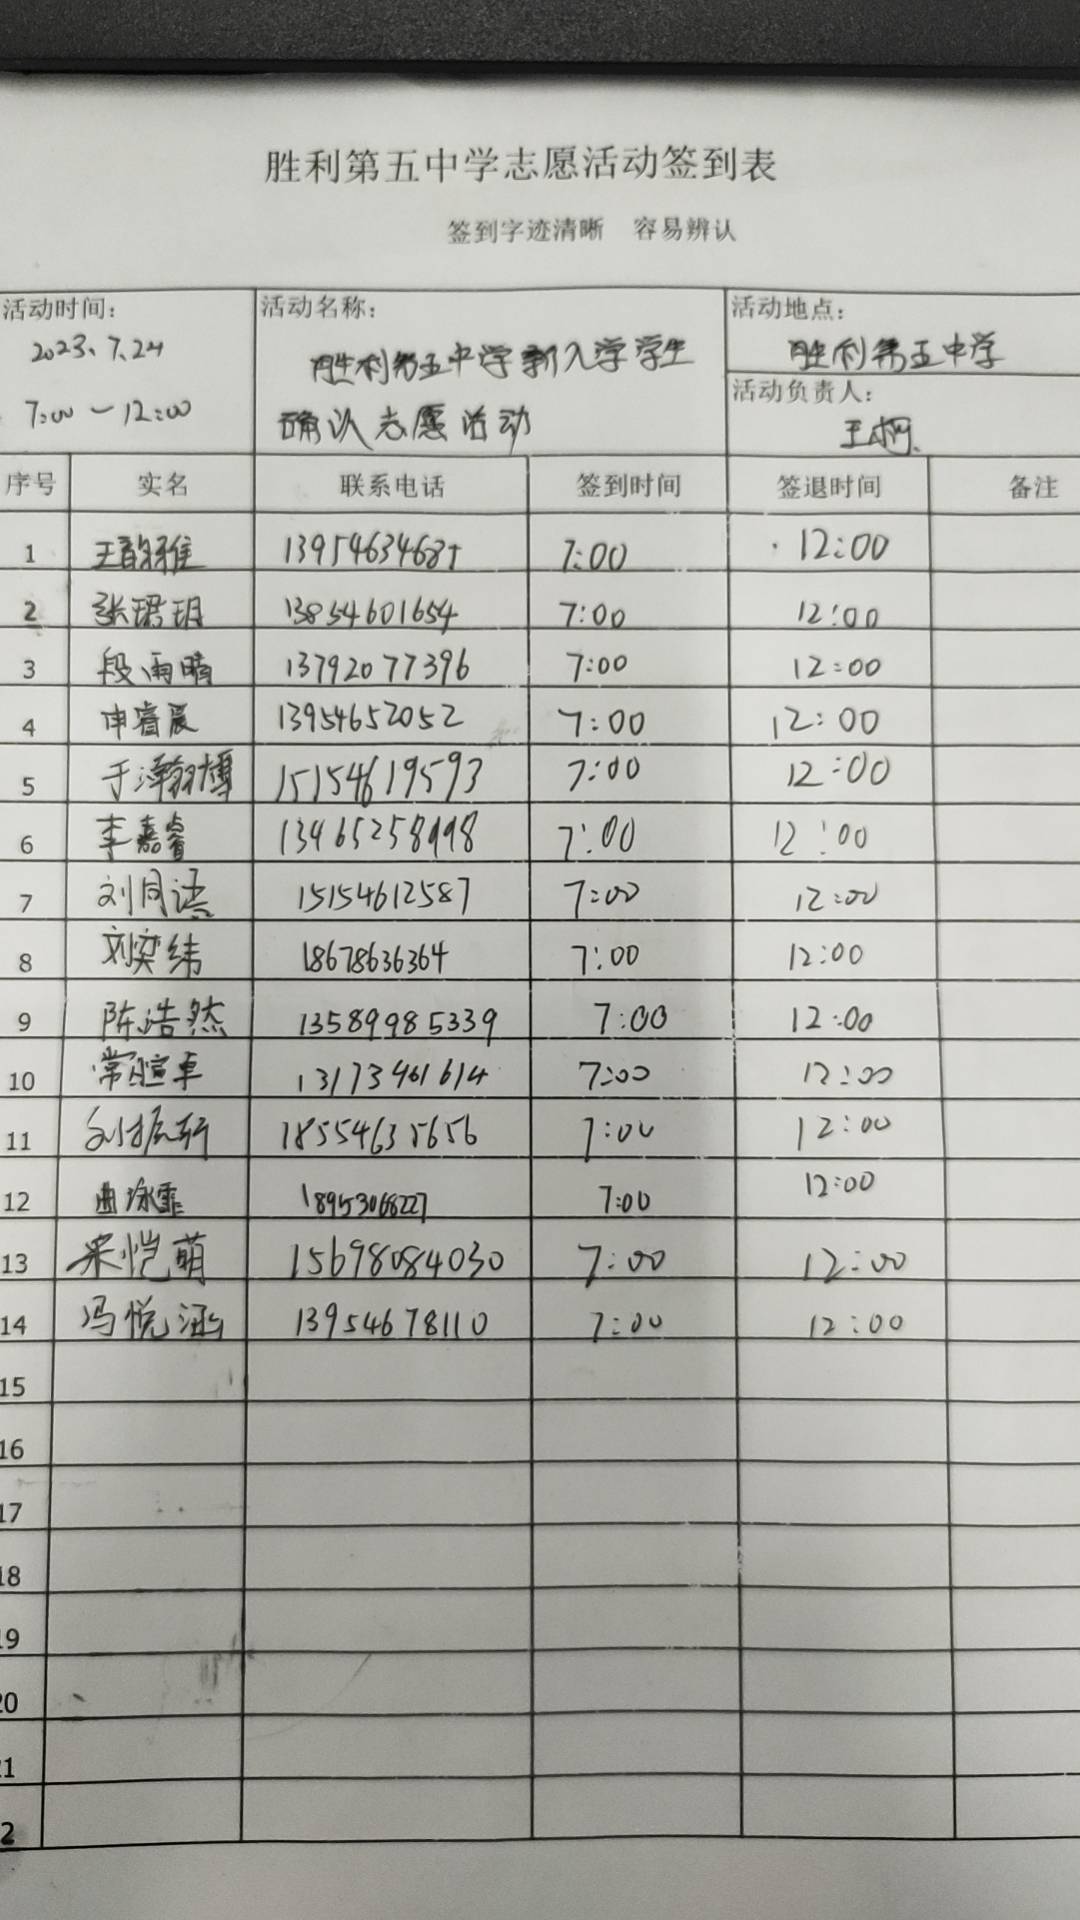 胜利第五中学志愿活动签到表
签到字迹清晰 容易辨认
活动时间: 活动名称: 活动地点:
2023.7.24 胜利第五中学新入学学生 胜利第五中学
7:00-12:00 确认志愿活动 活动负责人:
王柯
序号 实名 联系电话 签到时间 签退时间 备注
1 王韵雅 13954634685 7:00 12:00
2 张珺玥 13854601654 7:00 12:00
3 段雨晴 13792077396 7:00 12:00
4 申睿宸 13954652052 7:00 12:00
5 于泽翰博 15154619593 7:00 12:00
6 李嘉睿 7:00 12:00
7 刘同语 15154612587 7:00 12:00
8 刘奕纬 18678636364 7:00 12:00
9 陈浩然 13589985339 7:00 12:00
10 常暄卓 13173461614 7:00 12:00
11 18554635656 7:00 12:00
12 曲泳霏 18953068227 7:00 12:00
13 宋恺萌 15698084030 7:00 12:00
14 冯悦涵 13954678110 7:00 12:00
15
16
17
18
19
20
21
2